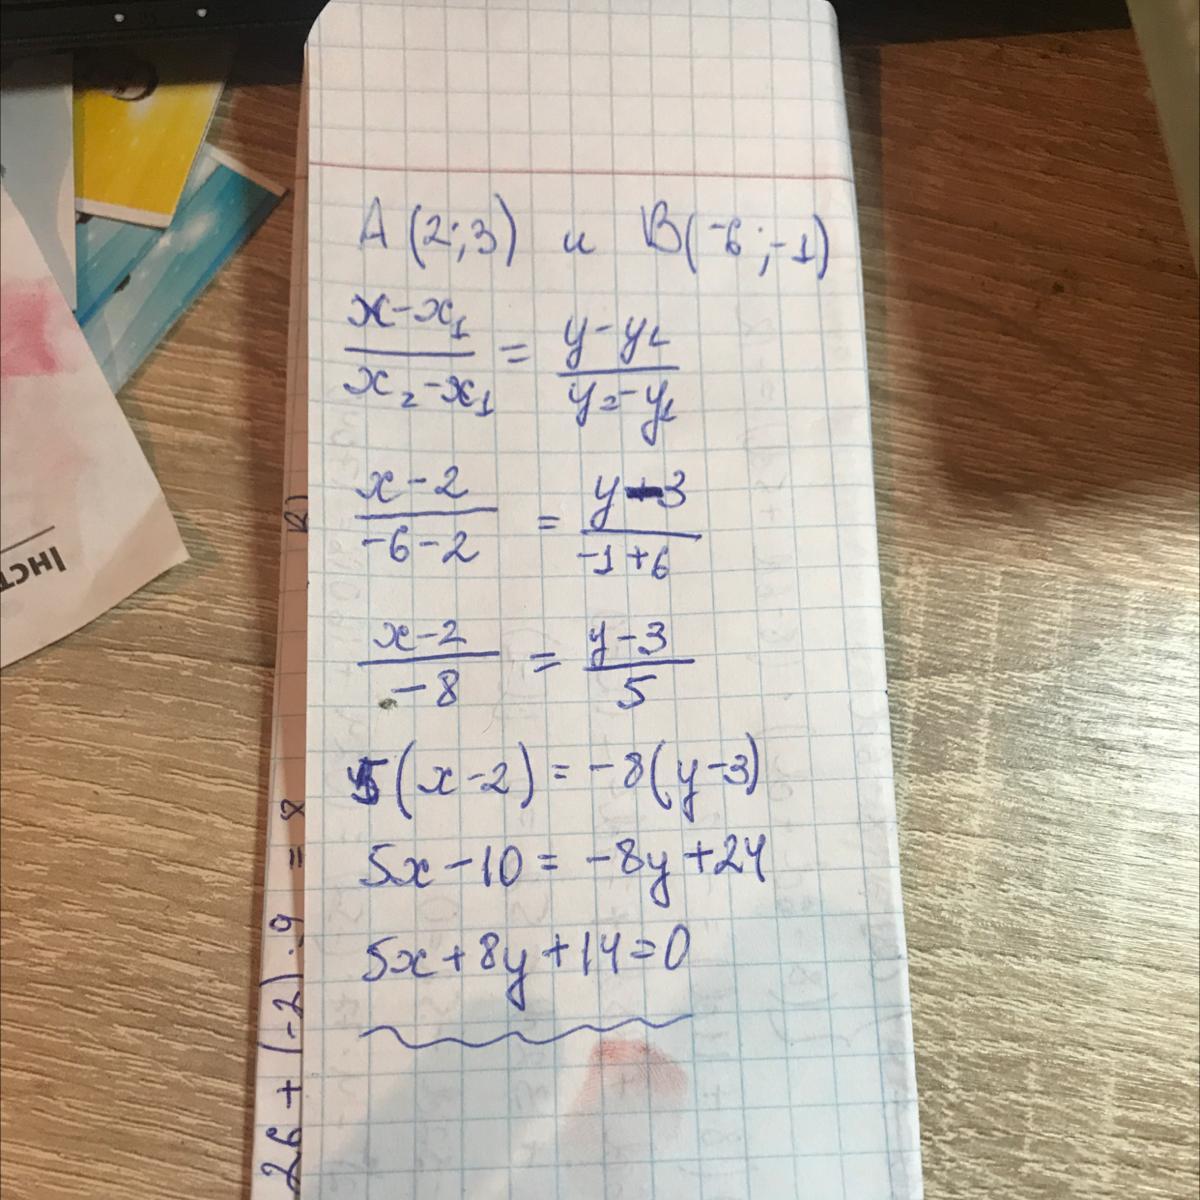 A (2;3) и B(-6;-1)
(x-x₁)/(x₂-x₁) = (y-y₁)/(y₂-y₁)
(x-2)/(-6-2) = (y-3)/(-1+6)
(x-2)/(-8) = (y-3)/5
5(x-2)=-8(y-3)
5x-10=-8y+24
5x+8y+14=0
26+(-2):9 = 8
В)
Інст